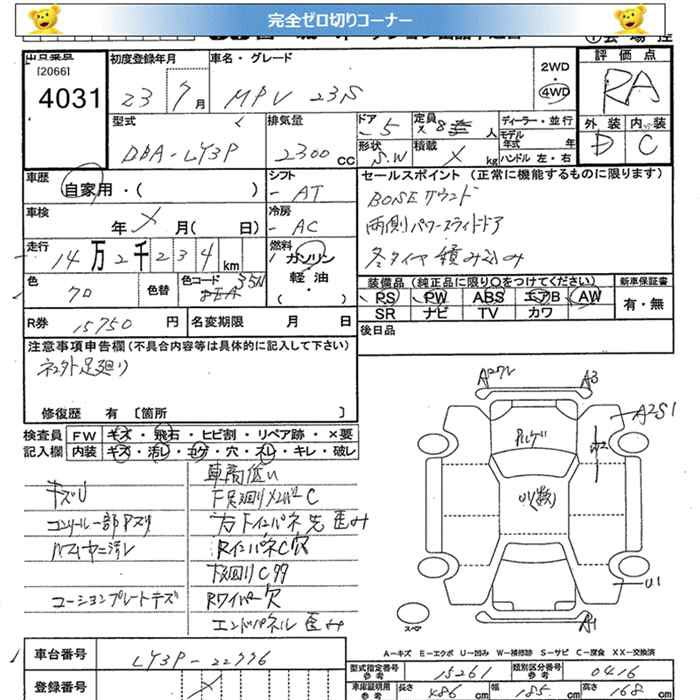 完全ゼロ切りコーナー
出品番号 初度登録年月 車名・グレード 2WD 評価点
[2066]
4031 23 7月 MPV 23S 4WD RA
型式 排気量 ドア 5 定員 8 人 ディーラー・並行 外装 内装
DBA-LY3P 2300CC 形状 S.W 積載 × kg モデル年式 年式 D C
ハンドル 左・右
車歴 シフト セールスポイント (正常に機能するものに限ります)
自家用・( ) AT BOSEサウンド
車検 年 × 月( 日) 冷房 AC 両側パワースライドドア
走行 14万2千234km 燃料 ガソリン 冬タイヤ積み込み
軽油
色 クロ 色替 色コード 35N ・( ・ ) 装備品 (純正品に限り○をつけてください) 新車保証書
PS PW ABS エアB AW 有・無
R券 15750円 名変期限 月 日 SR ナビ TV カワ
後日品
注意事項申告欄(不具合内容等は具体的に記入して下さい)
足廻り
修復歴 有 〔箇所 〕
検査員 FW キズ・飛石・ヒビ割・リペア跡・×要
記入欄 内装 キズ・汚レ・コゲ・穴・スレ・キレ・破レ
車高低い
キズU 下足廻りメンバーC
コンソール一部
インパネ先歪み
RインパネC穴
下廻りCサビ
コーションプレートキズ Rワイパー穴
エンドパネル歪み
A3
A2S1
U1
A1
スペア
A-キズ E-エクボ U-凹み W-補修跡 S-サビ C-腐食 XX-交換済
車台番号 LY3P- 型式指定番号 参考 15261 類別区分番号 参考 0416
登録番号 × 車庫証明用 参考 長さ 486cm 幅 185cm 高さ 168cm